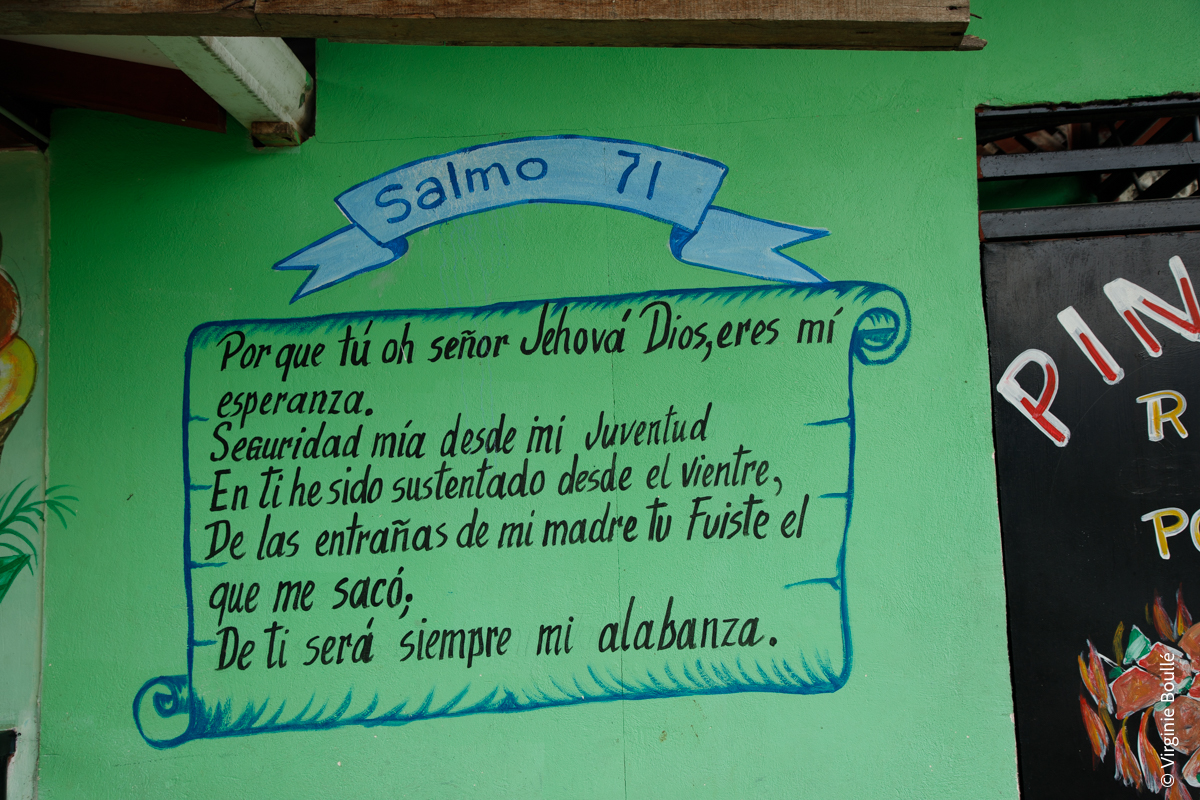 Salmo 71
Por que tú oh señor Jehová Dios, eres mí
esperanza.
Seguridad mía desde mi Juventud
En ti he sido sustentado desde el vientre,
De las entrañas de mi madre tu Fuiste el
que me sacó;
De ti será siempre mi alabanza.
PIN
R
PO
© Virginie Boullé